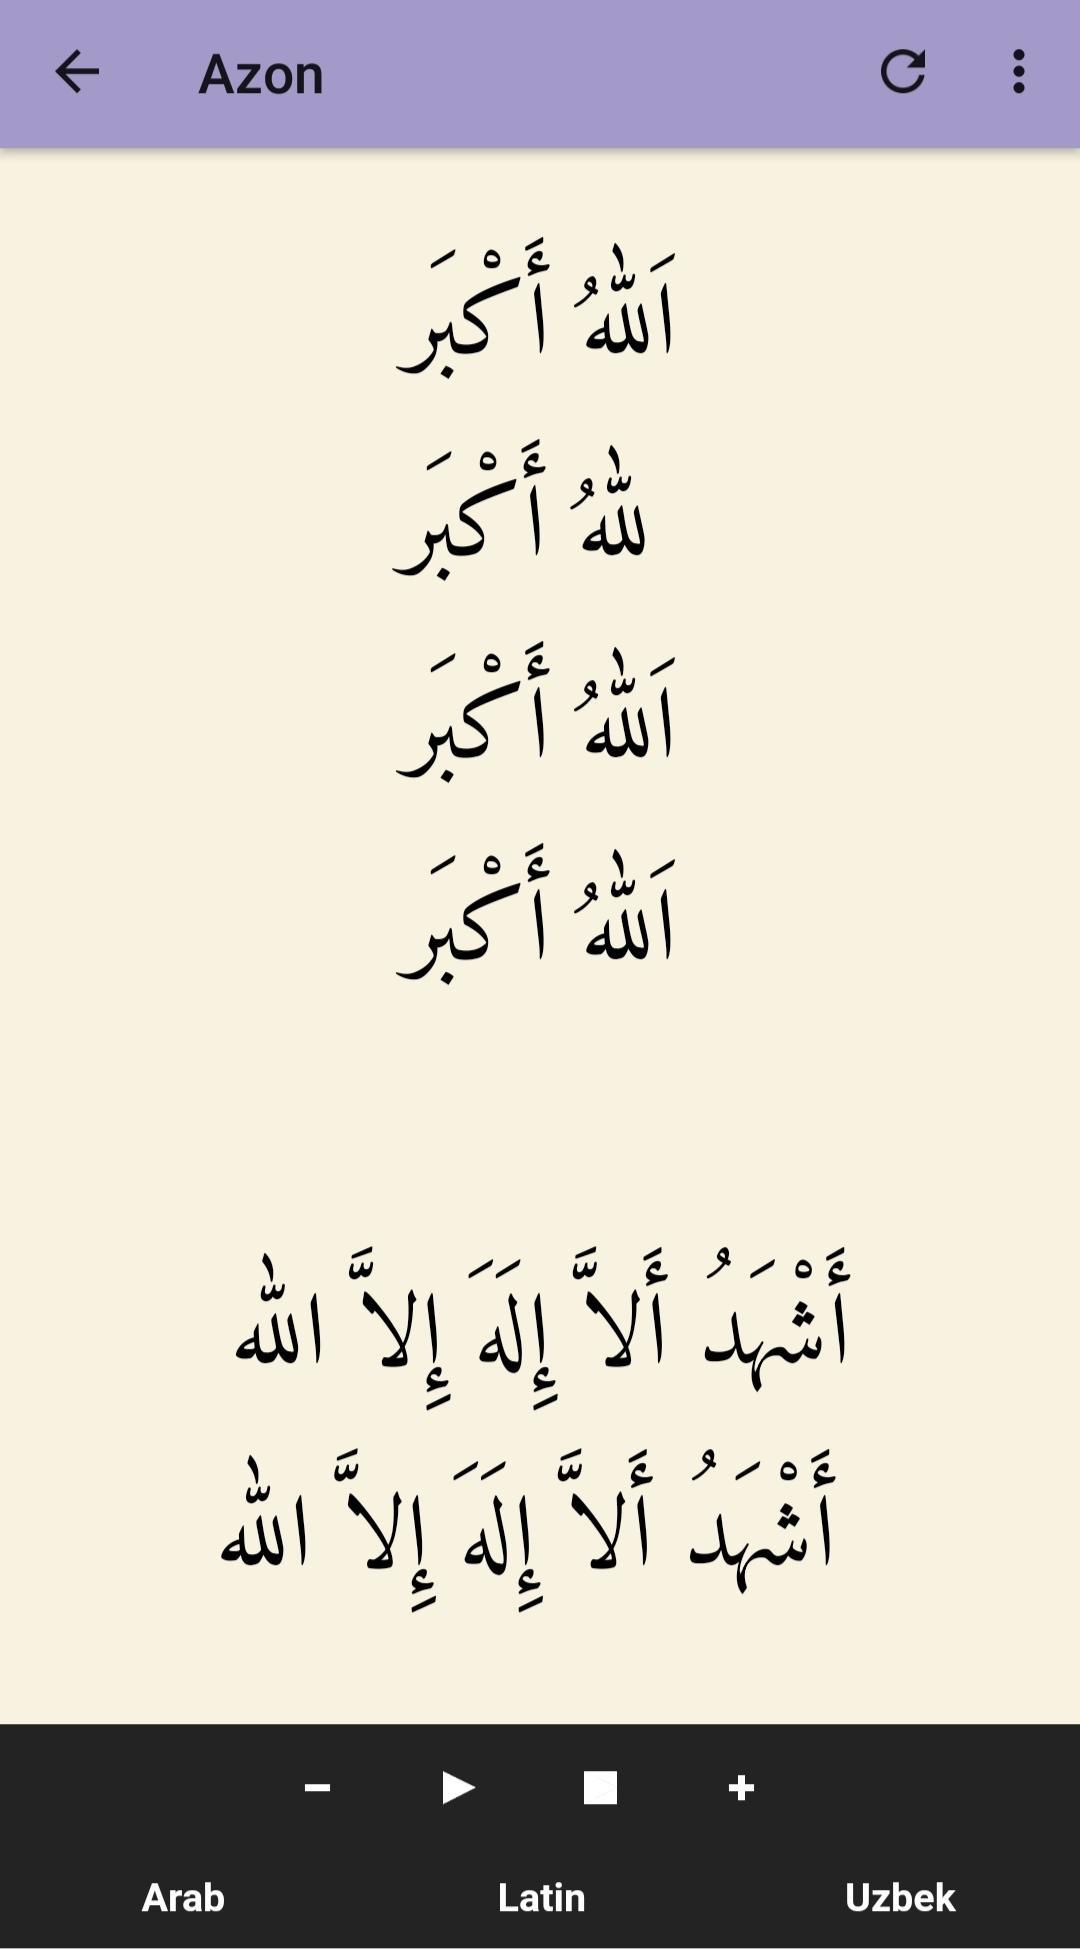 Azon
اَللهُ أَكْبَر
للهُ أَكْبَر
اَللهُ أَكْبَر
اَللهُ أَكْبَر
أَشْهَدُ أَلاَّ إِلَهََ إِلاَّ الله
أَشْهَدُ أَلاَّ إِلَهََ إِلاَّ الله
Arab Latin Uzbek